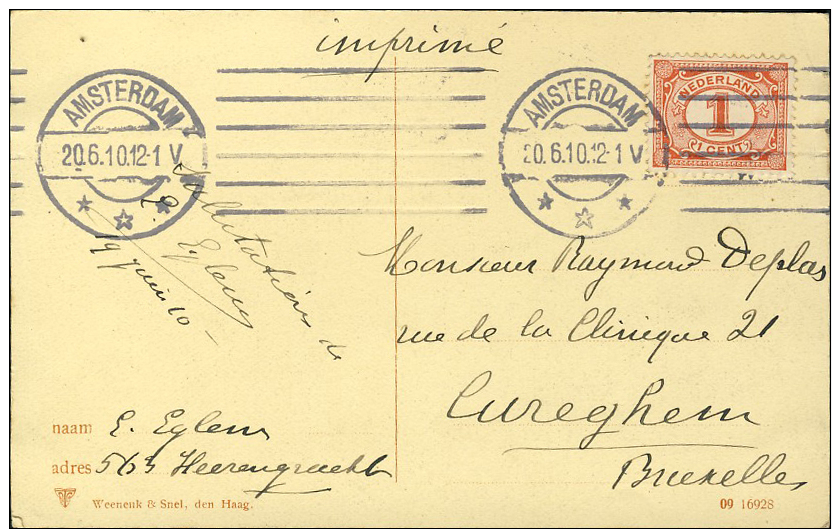 imprimé
AMSTERDAM
20.6.10.12-1 V
AMSTERDAM
20.6.10.12-1 V
NEDERLAND
1
1 CENT
Salutations de
E. Eglem
19 juin 10 -
Monsieur Raymond Deplas
rue de la Clinique 21
Cureghem
Bruxelles
naam E. Eglem
adres 563 Heerengracht
Weenenk & Snel, den Haag.
09 16928